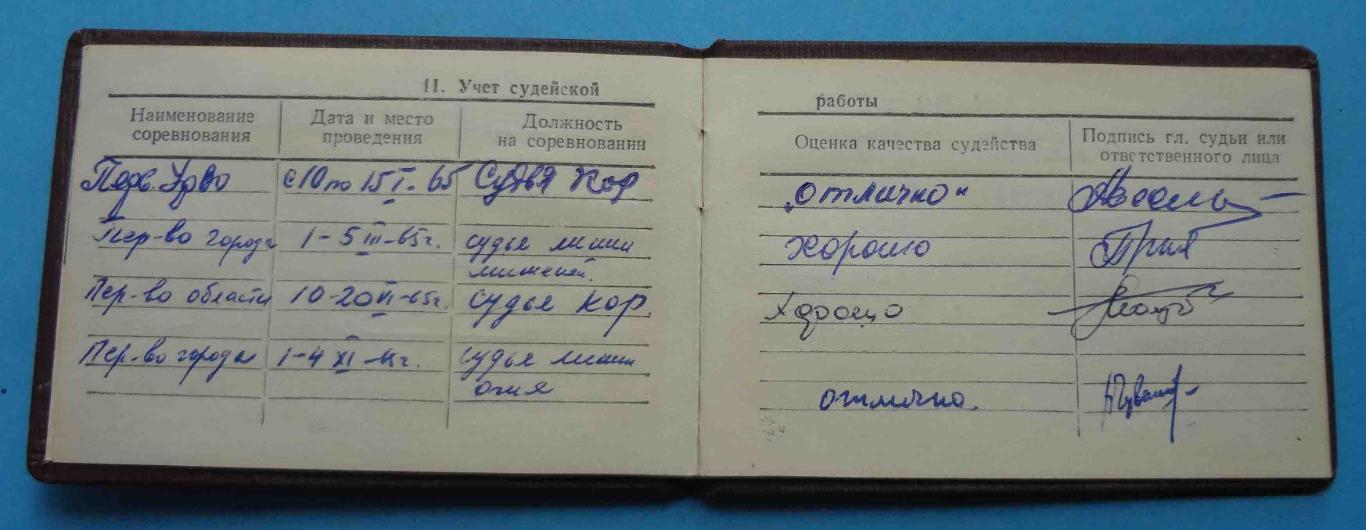 II. Учет судейской
Наименование соревнования
Дата и место проведения
Должность на соревновании
Перв. с 10 по 15 I-65 Судья Кор
Пер-во города 1-5 III-65г. судья линии
мишеней.
Пер-во области 10-20 VI-65г. судья кор.
Пер-во города 1-4 XI г. судья линии
огня
работы
Оценка качества судейства
Подпись гл. судьи или ответственного лица
„отлично“
хорошо
Хорошо
отлично.